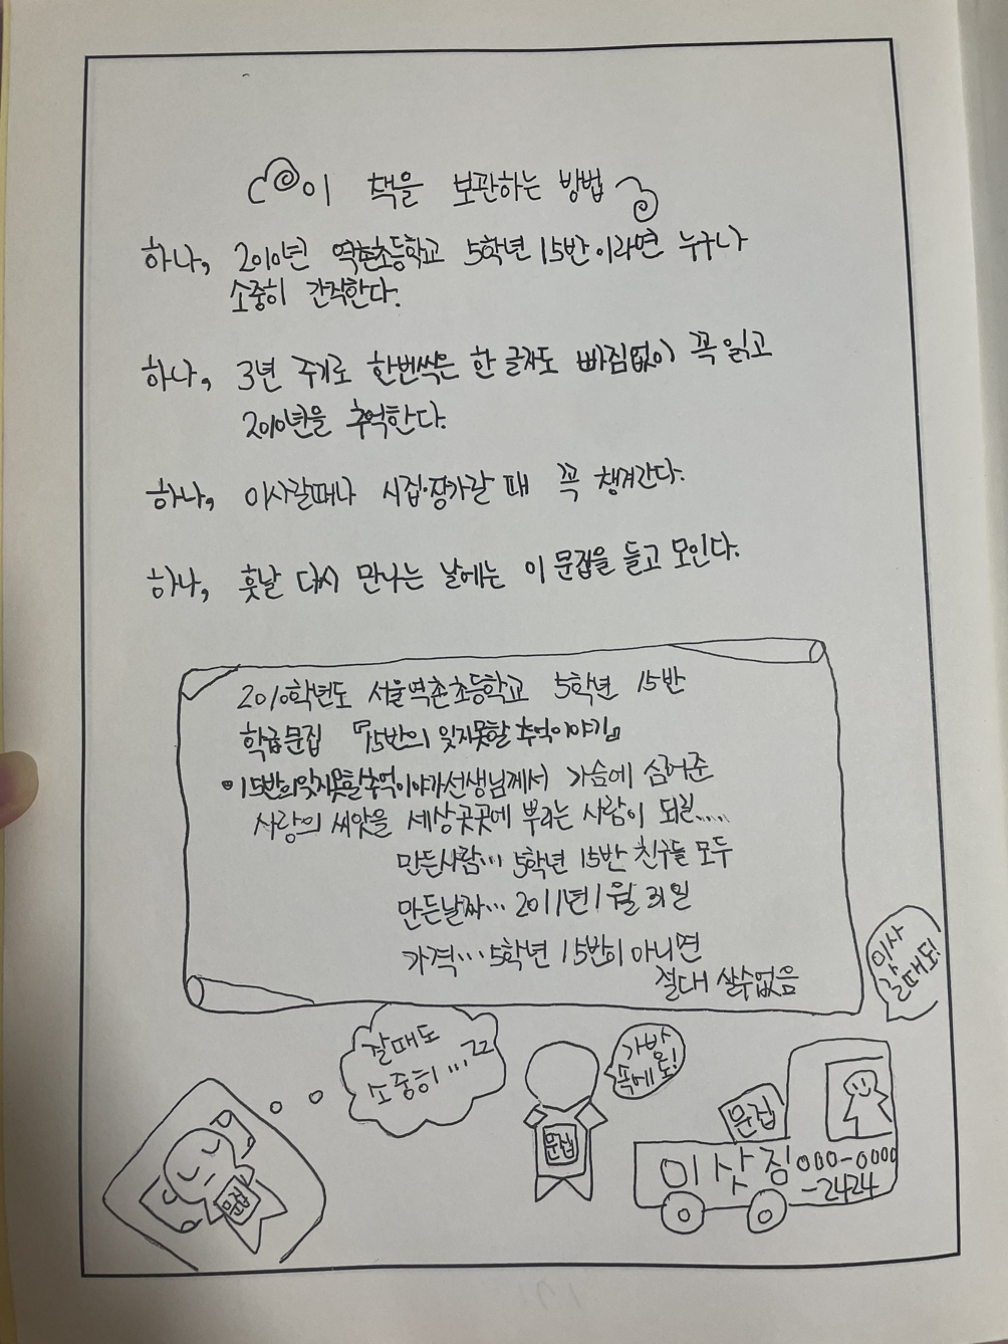 이 책을 보관하는 방법
하나, 2010년 역촌초등학교 5학년 15반이라면 누구나
소중히 간직한다.
하나, 3년 주기로 한번씩은 한 글자도 빠짐없이 꼭 읽고
2010년을 추억한다.
하나, 이사갈때나 시집·장가갈 때 꼭 챙겨간다.
하나, 훗날 다시 만나는 날에는 이 문집을 들고 모인다.
2010학년도 서울역촌초등학교 5학년 15반
학급문집 『15반의 잊지못할 추억이야기』
•15반의잊지못할추억이야기선생님께서 가슴에 심어준
사랑의 씨앗을 세상곳곳에 뿌리는 사람이 되길.....
만든사람... 5학년 15반 친구들 모두
만든날짜... 2011년 1월 31일
가격... 5학년 15반이 아니면
절대 살수없음
이사
갈때도!
잘때도
소중히...zz
가방
속에도!
문집
문집
문집
이삿짐 000-0000
-2424